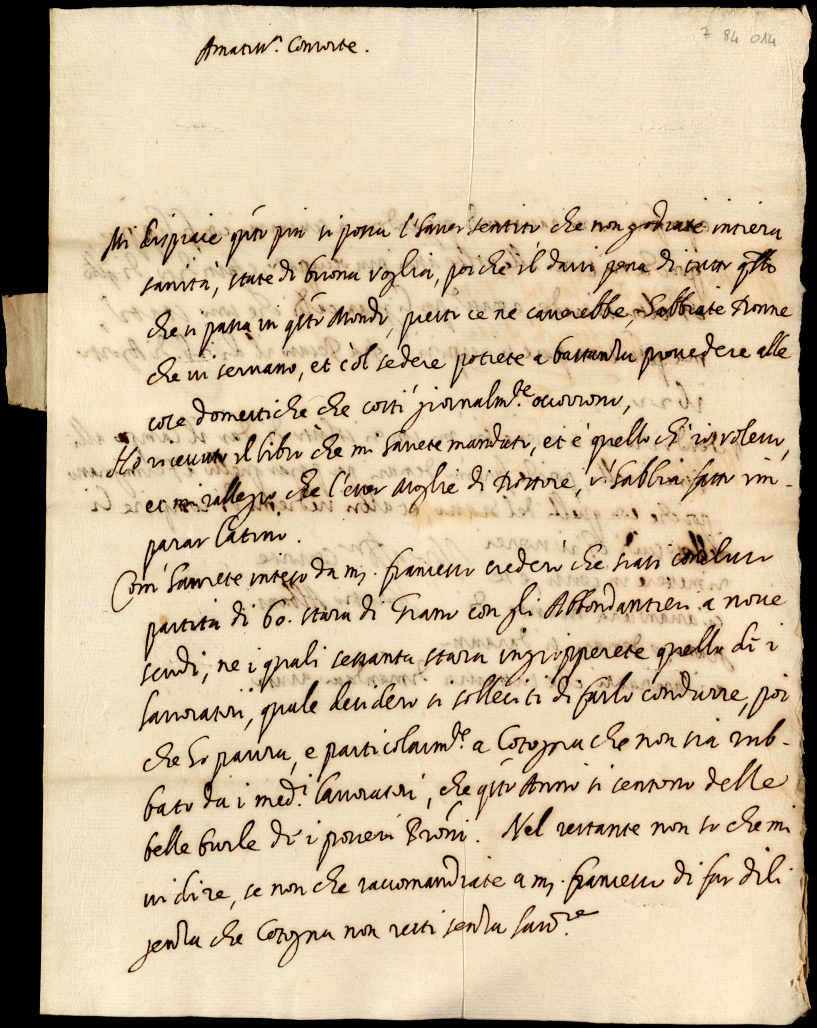 7 84 014
Amatiss.ª Consorte.
Mi dispiace q̃to piu si possa l'haver sentito che non godiate intiera
sanità, state di buona voglia, poiche il darsi pena di tutto q̃llo
che si passa in q̃sto Mondo, presto ce ne caverebbe, habbiate Donne
che vi servano, et c'ol sedere potrete a bastanza provedere alle
cose domestiche che costi giornalm.te occorrono,
Hò ricevuto il libro che mi havete mandato, et è quello ch'io volevo,
et mi rallegro che l'esser Moglie di Dottore, v'habbia fatto im-
parar Latino.
Com'havrete inteso da m. francesco crederò che stasi concluso
partita di 60. stara di Grano con gli Abbondantieri a nove
scudi, ne i quali sessanta stara ingropperete quello di i
lavoratori, quale desidero si solleciti di farlo condurre, poi
che ho paura, e particolarm.te a Cologna che non sia rub-
bato da i med.i lavoratori, che q̃sto Anno si sentono delle
belle burle de i poveri Pròni. Nel restante non so che mi
vi dire, se non che raccomandiate a m. francesco di far dili
genza che Cologna non resti senza lavor.re